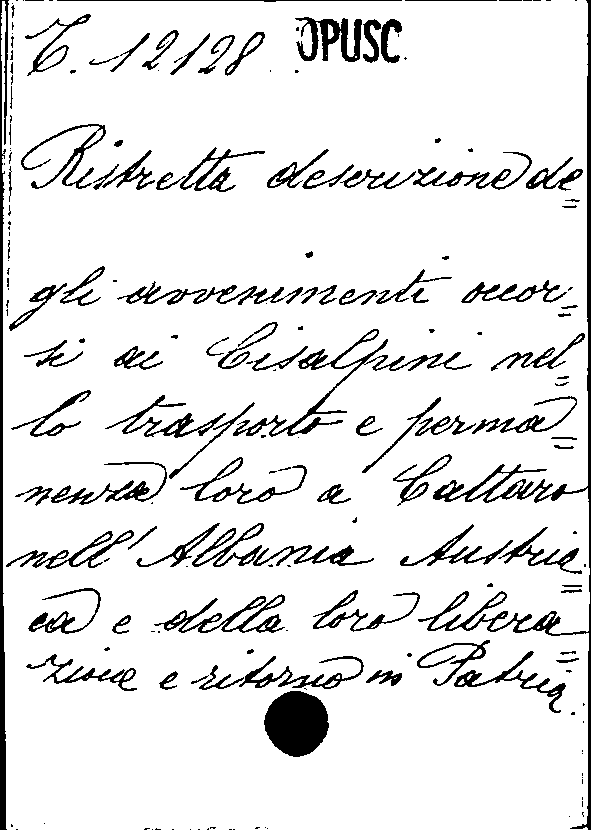 T. 12128 OPUSC
Ristretta descrizione de=
gli avvenimenti occor=
si ai Cisalpini nel=
lo trasporto e perma=
nenza loro a Cattaro
nell' Albania Austria=
ca e della loro libera=
zione e ritorno in Patria.